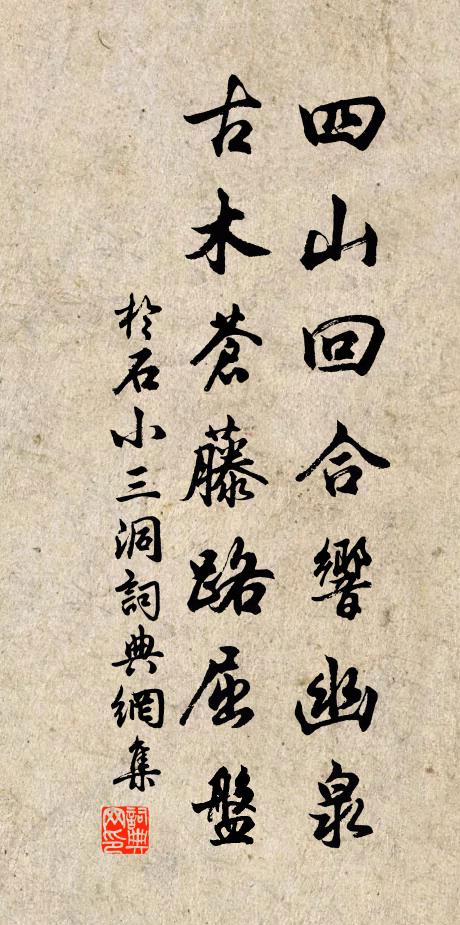 四山回合響幽泉
古木蒼藤路屈盤
於石小三洞詞典網集
詞典
网印